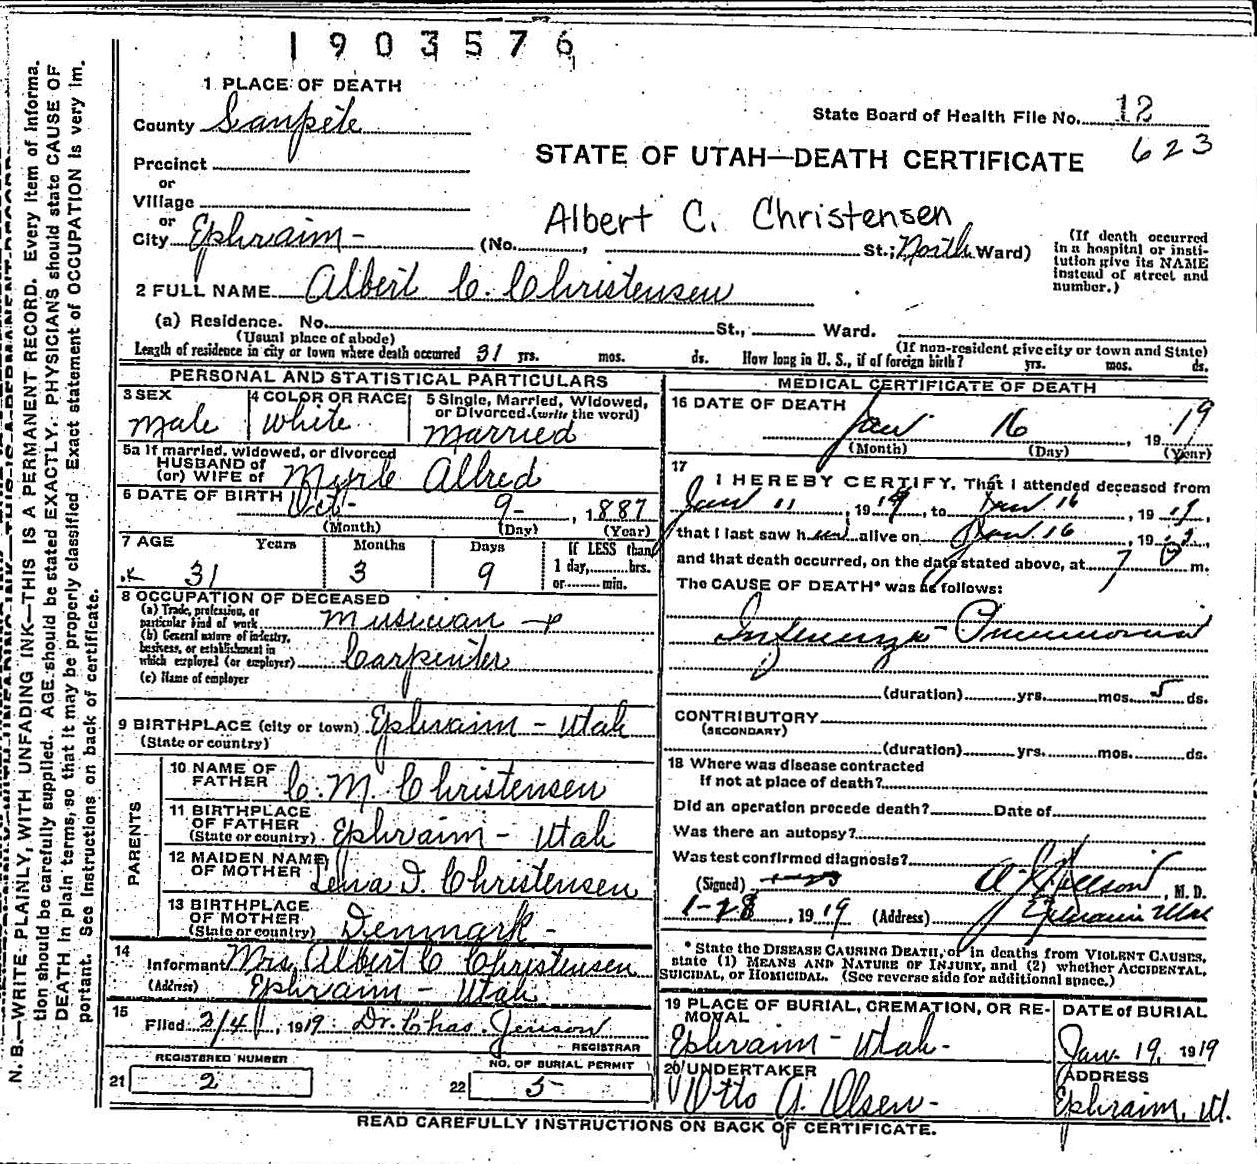 1903576
1 PLACE OF DEATH
County Sanpete
State Board of Health File No. 12
623
STATE OF UTAH—DEATH CERTIFICATE
Precinct
or
Village
or
City Ephraim - (No. , St.; North Ward)
Albert C. Christensen
(If death occurred in a hospital or insti-
tution give its NAME
instead of street and
number.)
2 FULL NAME Albert C. Christensen
(a) Residence. No. St., Ward.
(Usual place of abode) (If non-resident give city or town and State)
Length of residence in city or town where death occurred 31 yrs. mos. ds. How long in U. S., if of foreign birth? yrs. mos. ds.
PERSONAL AND STATISTICAL PARTICULARS
3 SEX Male
4 COLOR OR RACE White
5 Single, Married, Widowed, or Divorced. (write the word) Married
5a If married, widowed, or divorced
HUSBAND of
(or) WIFE of Myrle Allred
6 DATE OF BIRTH Oct - 9 - , 1887
(Month) (Day) (Year)
7 AGE Years Months Days If LESS than
1 day, hrs.
or min.
31 3 9
8 OCCUPATION OF DECEASED
(a) Trade, profession, or
particular kind of work Musician +
(b) General nature of industry,
business, or establishment in
which employed (or employer) Carpenter
(c) Name of employer
9 BIRTHPLACE (city or town) Ephraim - Utah
(State or country)
PARENTS
10 NAME OF
FATHER C. M. Christensen
11 BIRTHPLACE
OF FATHER
(State or country) Ephraim - Utah
12 MAIDEN NAME
OF MOTHER Christensen
13 BIRTHPLACE
OF MOTHER
(State or country) Denmark -
14 Informant Mrs. Albert C Christensen
(Address) Ephraim - Utah
15 Filed 2/4, 1919. Dr. Chas. Jenson
REGISTRAR
REGISTERED NUMBER
21 2
NO. OF BURIAL PERMIT
22 5
MEDICAL CERTIFICATE OF DEATH
16 DATE OF DEATH
Jan 16, 1919
(Month) (Day) (Year)
17 I HEREBY CERTIFY, That I attended deceased from
Jan 11, 1919, to Jan 16, 1919,
that I last saw h alive on Jan 16, 19
and that death occurred, on the date stated above, at 7 m.
The CAUSE OF DEATH* was as follows:
Influenza - Pneumonia
(duration) yrs. mos. 5 ds.
CONTRIBUTORY
(SECONDARY)
(duration) yrs. mos. ds.
18 Where was disease contracted
If not at place of death?
Did an operation precede death? Date of
Was there an autopsy?
Was test confirmed diagnosis?
(Signed) , M. D.
1-28, 1919 (Address) Ephraim Utah
* State the DISEASE CAUSING DEATH, or in deaths from VIOLENT CAUSES,
state (1) MEANS AND NATURE OF INJURY, and (2) whether ACCIDENTAL,
SUICIDAL, or HOMICIDAL. (See reverse side for additional space.)
19 PLACE OF BURIAL, CREMATION, OR RE-
MOVAL
Ephraim - Utah -
DATE of BURIAL
Jan. 19, 1919
20 UNDERTAKER
Otto A. Olsen -
ADDRESS
Ephraim, Ut.
READ CAREFULLY INSTRUCTIONS ON BACK OF CERTIFICATE.
N. B.—WRITE PLAINLY, WITH UNFADING INK—THIS IS A PERMANENT RECORD. Every item of informa-
tion should be carefully supplied. AGE should be stated EXACTLY. PHYSICIANS should state CAUSE OF
DEATH in plain terms, so that it may be properly classified. Exact statement of OCCUPATION is very im-
portant. See instructions on back of certificate.